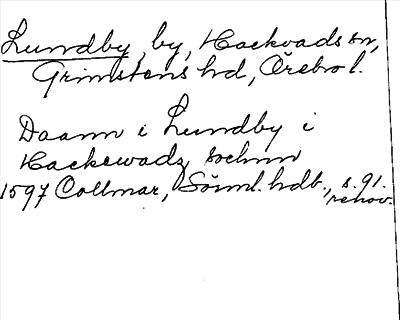 Lundby, by, Hackvads sn,
Grimstens hd, Örebro l.
Daann i Lundby i
Hackewadz sochnn
1597 Collmar, Söml. hdb., s. 91.
renov.